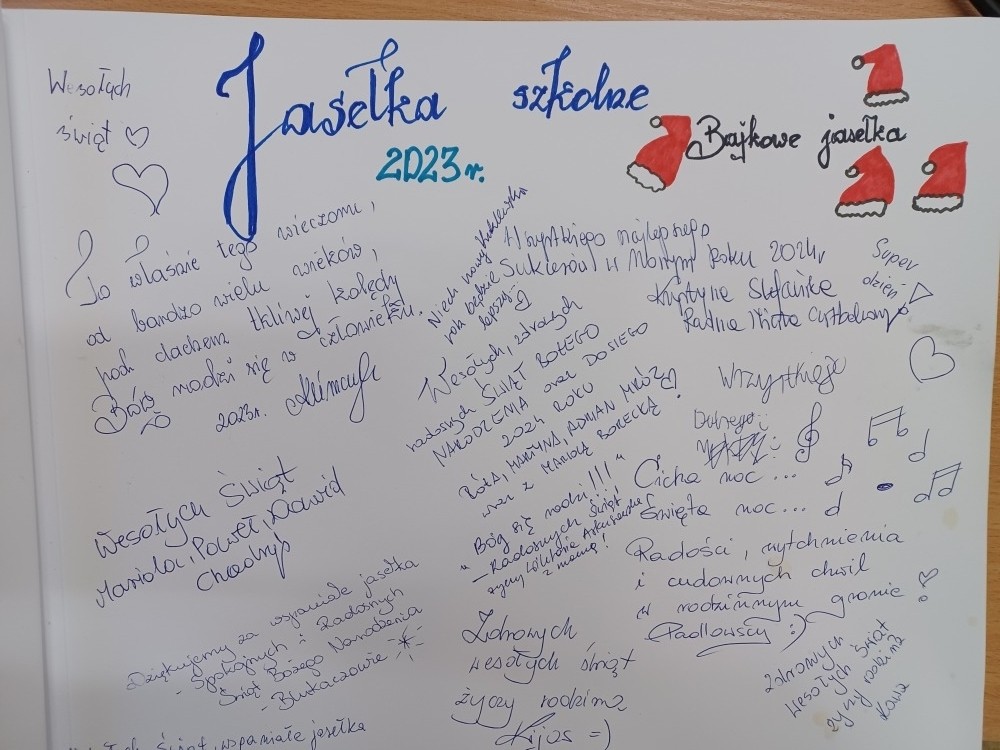 Jasełka szkolne
2023r.
Bajkowe jasełka
Wesołych
świąt
To właśnie tego wieczoru,
od bardzo wielu wieków,
pod dachem tkliwej kolędy
Bóg rodzi się w człowieku.
2023r.
Niech nowy
rok będzie
lepszy
Wszystkiego najlepszego
Sukcesów w Nowym Roku 2024r
Krystyna Stefańska
Radna Miasta
Super
dzień
Wesołych, zdrowych
radosnych ŚWIĄT BOŻEGO
NARODZENIA oraz DOSIEGO
2024 ROKU
RÓŻA, MARTYNA, ADRIAN MRÓZ
wraz z MARIOLĄ BORECKĄ
Wszystkiego
Dobrego
Cicha noc...
Święta noc...
Wesołych Świąt
Mariola, Paweł, Dawid
"Bóg się rodzi!!!"
- Radosnych Świąt
życzy
z mamą!
Radości, wytchnienia
i cudownych chwil
w rodzinnym gronie
Padłowscy :)
Dziękujemy za wspaniałe jasełka
- Spokojnych i Radosnych
Świąt Bożego Narodzenia
- Blukaczowie
Zdrowych
wesołych świąt
życzy rodzina
Kijas =)
zdrowych
Wesołych Świąt
życzy rodzina
Świąt, wspaniałe jasełka